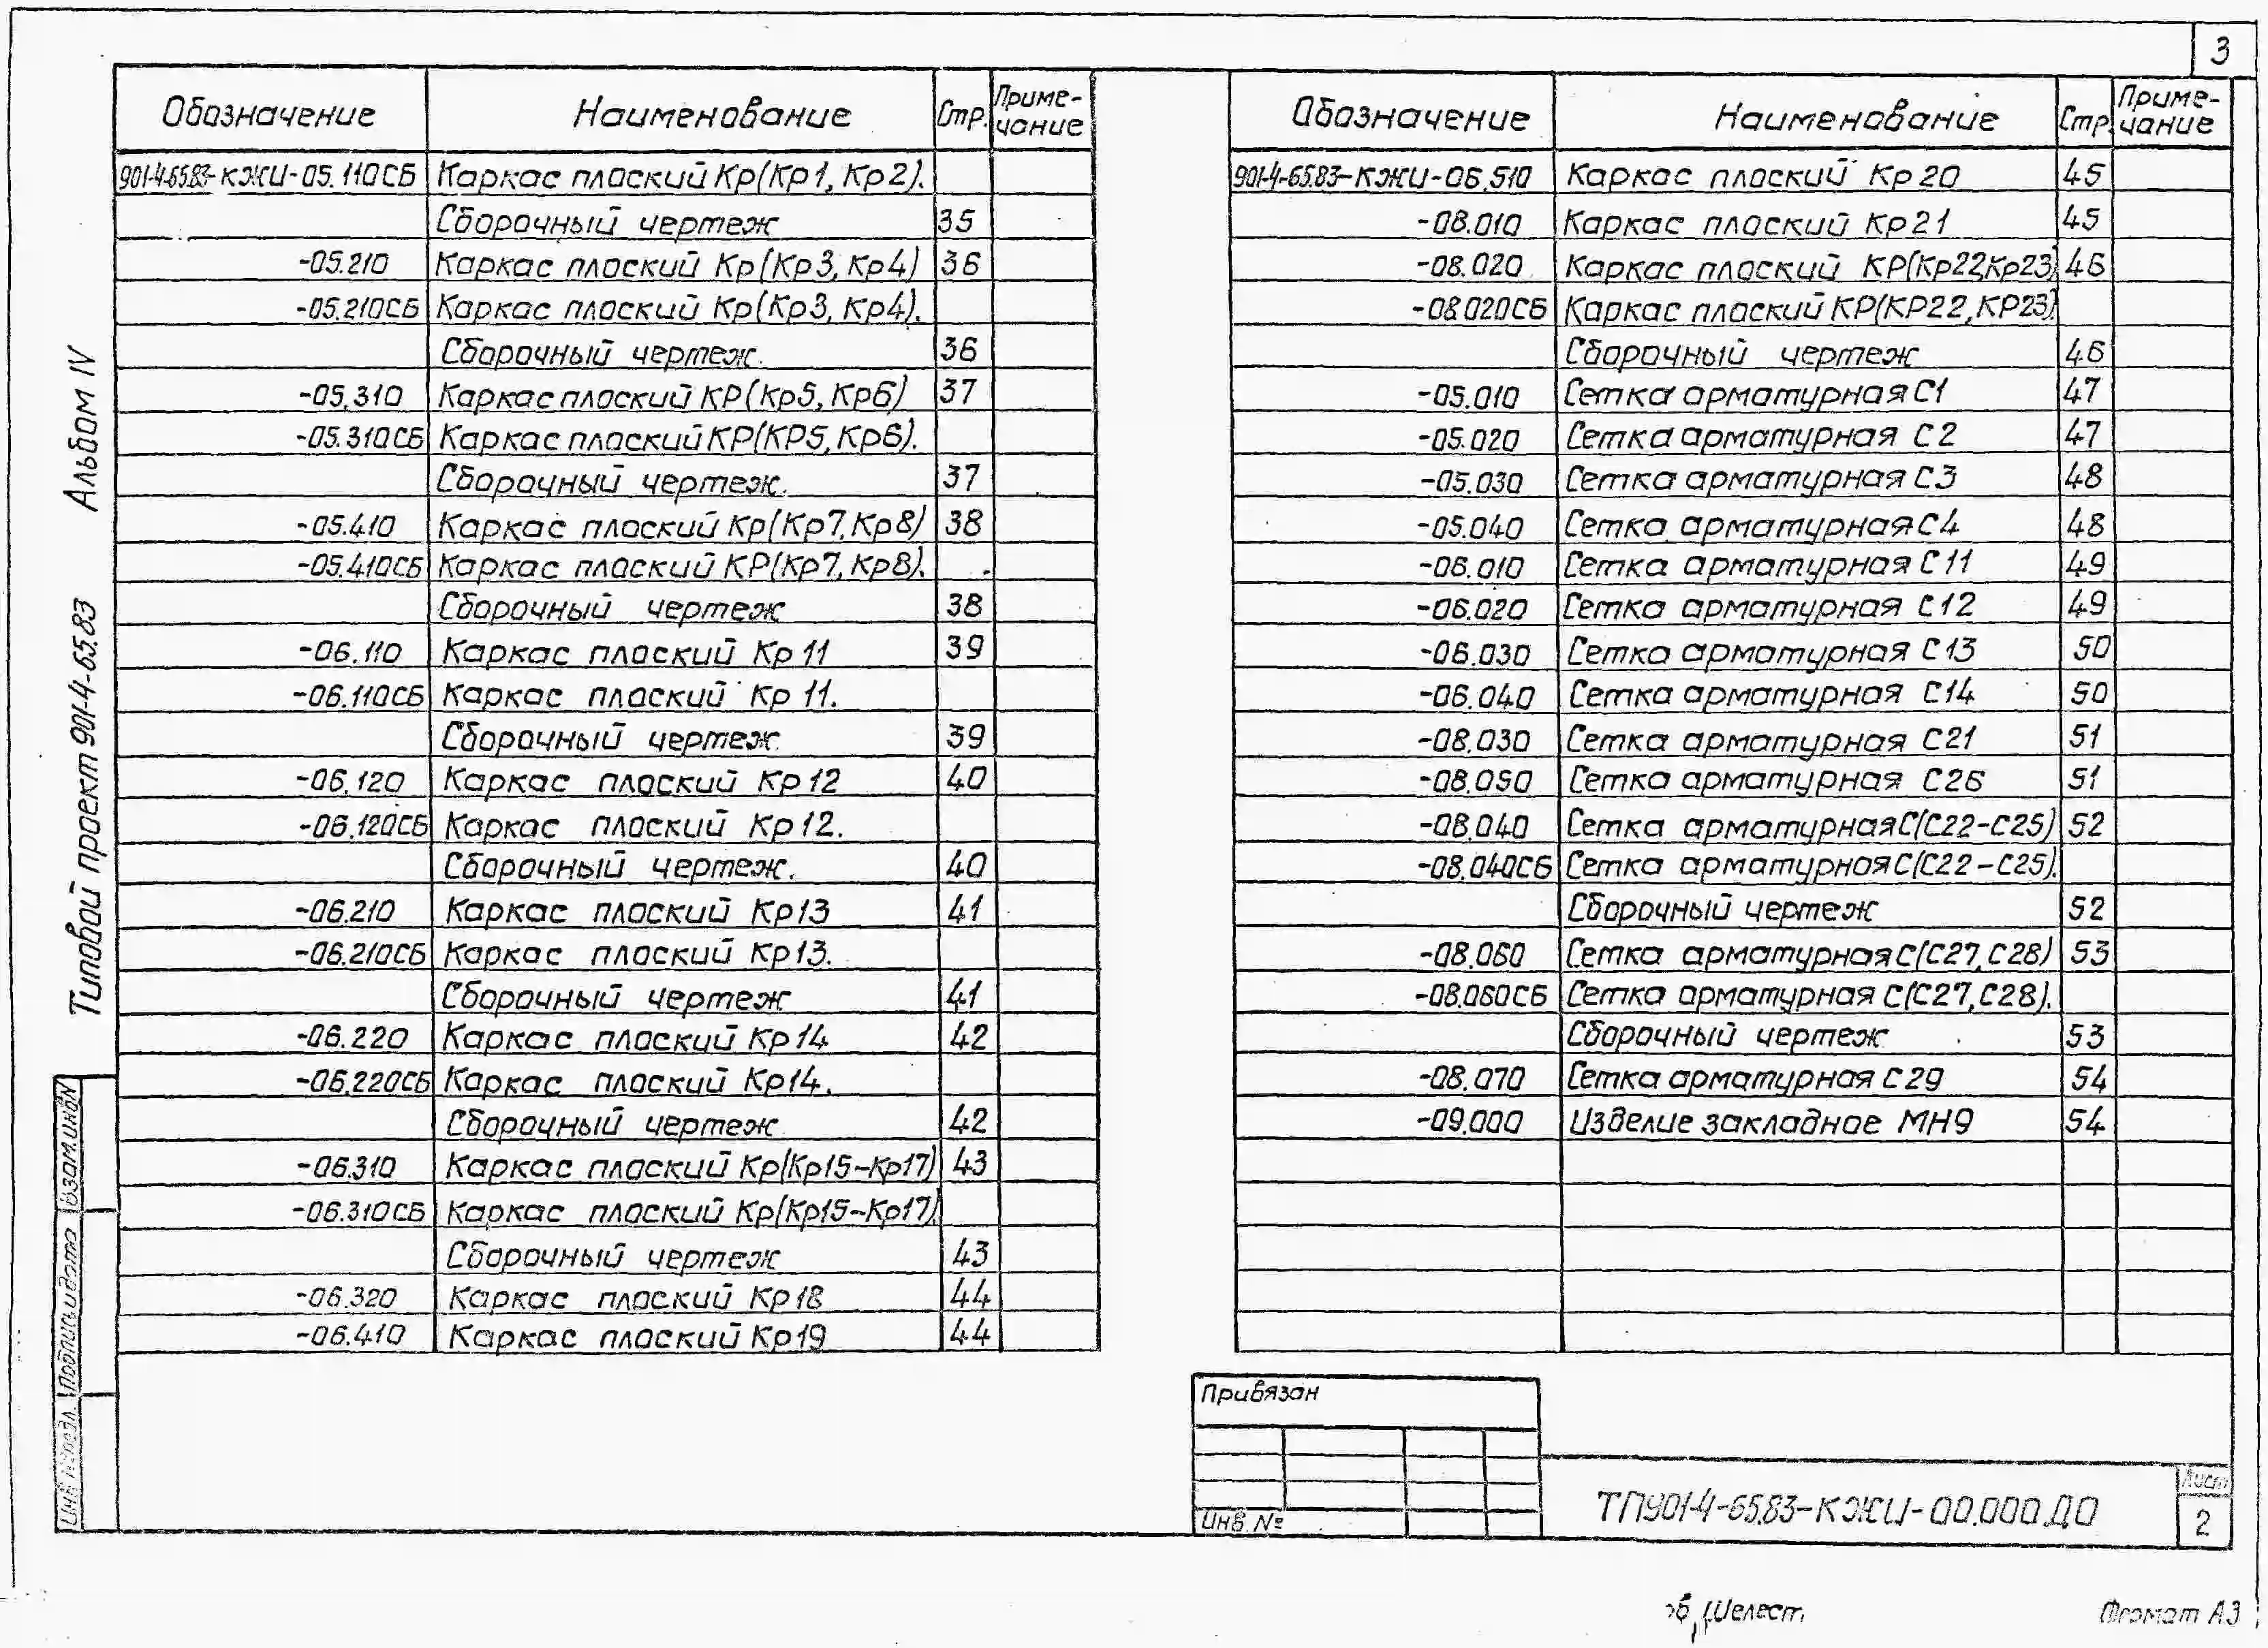 3
Обозначение Наименование Стр. Приме-
чание
901-4-65.83-КЖИ-05.110СБ Каркас плоский Кр(Кр1, Кр2).
Сборочный чертеж 35
-05.210 Каркас плоский Кр(Кр3, Кр4) 36
-05.210СБ Каркас плоский Кр(Кр3, Кр4).
Сборочный чертеж. 36
-05.310 Каркас плоский КР(Кр5, Кр6) 37
-05.310СБ Каркас плоский КР(КР5, Кр6).
Сборочный чертеж. 37
-05.410 Каркас плоский Кр(Кр7, Кр8) 38
-05.410СБ Каркас плоский КР(Кр7, Кр8).
Сборочный чертеж 38
-06.110 Каркас плоский Кр 11 39
-06.110СБ Каркас плоский Кр 11.
Сборочный чертеж 39
-06.120 Каркас плоский Кр12 40
-06.120СБ Каркас плоский Кр12.
Сборочный чертеж. 40
-06.210 Каркас плоский Кр13 41
-06.210СБ Каркас плоский Кр13.
Сборочный чертеж 41
-06.220 Каркас плоский Кр14 42
-06.220СБ Каркас плоский Кр14.
Сборочный чертеж 42
-06.310 Каркас плоский Кр(Кр15~Кр17) 43
-06.310СБ Каркас плоский Кр(Кр15~Кр17).
Сборочный чертеж 43
-06.320 Каркас плоский Кр18 44
-06.410 Каркас плоский Кр19 44
Обозначение Наименование Стр. Приме-
чание
901-4-65.83-КЖИ-06.510 Каркас плоский Кр20 45
-08.010 Каркас плоский Кр21 45
-08.020 Каркас плоский КР(Кр22,Кр23) 46
-08.020СБ Каркас плоский КР(КР22,КР23).
Сборочный чертеж 46
-05.010 Сетка арматурная С1 47
-05.020 Сетка арматурная С2 47
-05.030 Сетка арматурная С3 48
-05.040 Сетка арматурная С4 48
-06.010 Сетка арматурная С11 49
-06.020 Сетка арматурная С12 49
-06.030 Сетка арматурная С13 50
-06.040 Сетка арматурная С14 50
-08.030 Сетка арматурная С21 51
-08.050 Сетка арматурная С26 51
-08.040 Сетка арматурная С(С22-С25) 52
-08.040СБ Сетка арматурная С(С22-С25).
Сборочный чертеж 52
-08.060 Сетка арматурная С(С27, С28) 53
-08.060СБ Сетка арматурная С(С27, С28).
Сборочный чертеж 53
-08.070 Сетка арматурная С29 54
-09.000 Изделие закладное МН9 54
Типовой проект 901-4-65.83 Альбом IV
Взам.инв.N
Подпись и дата
Инв. № подл.
Привязан
Инв. №
ТП901-4-65.83-КЖИ-00.000.Д0
Лист
2
Шелест
Формат А3